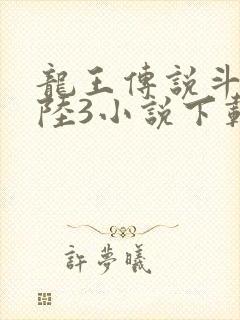 龍王傳說斗
陸3小說下載
許夢曦